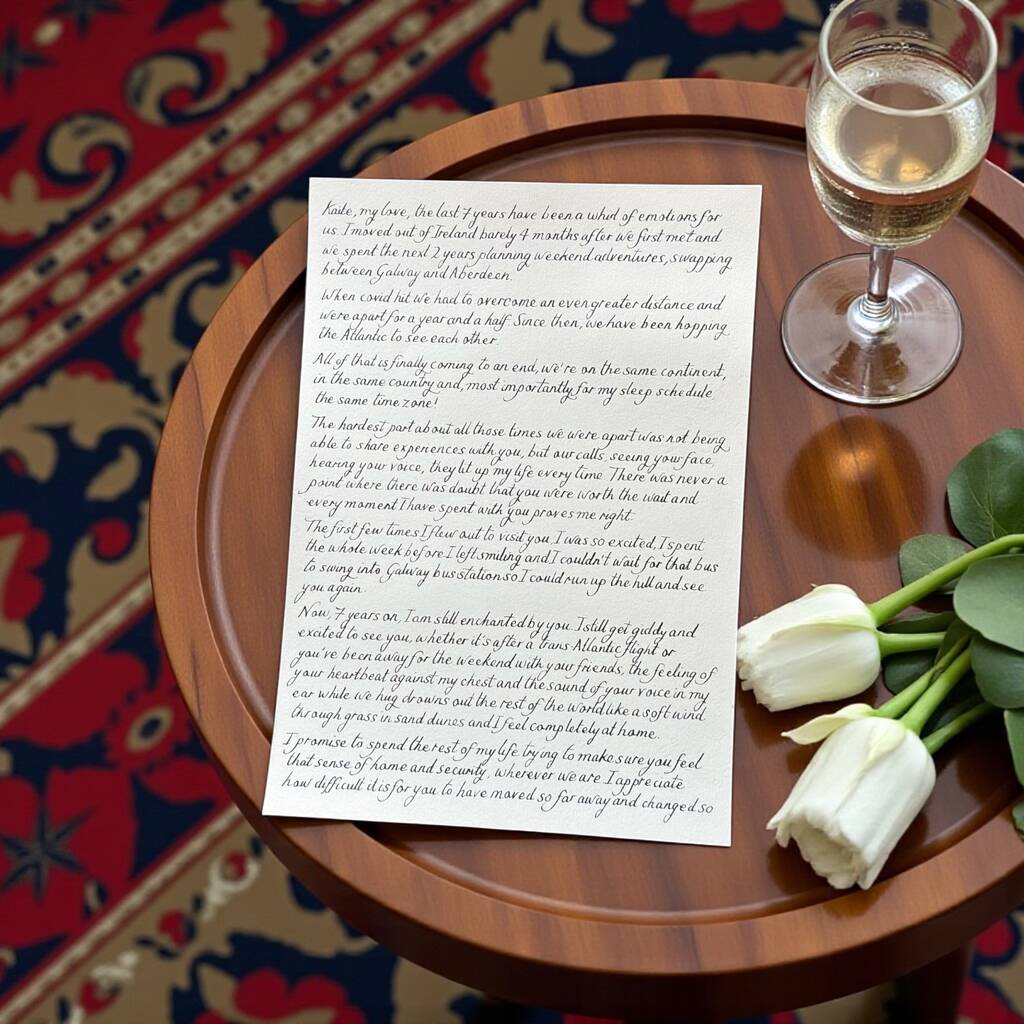 Kaite, my love, the last 7 years have been a whirl of emotions for
us. I moved out of Ireland barely 4 months after we first met and
we spent the next 2 years planning weekend adventures, swapping
between Galway and Aberdeen.
When covid hit we had to overcome an even greater distance and
were apart for a year and a half. Since then, we have been hopping
the Atlantic to see each other.
All of that is finally coming to an end, we're on the same continent,
in the same country and, most importantly for my sleep schedule,
the same time zone!
The hardest part about all those times we were apart was not being
able to share experiences with you, but our calls, seeing your face,
hearing your voice, they lit up my life every time. There was never a
point where there was doubt that you were worth the wait and
every moment I have spent with you proves me right.
The first few times I flew out to visit you, I was so excited, I spent
the whole week before I left smiling and I couldn't wait for that bus
to swing into Galway bus station so I could run up the hill and see
you again.
Now, 7 years on, I am still enchanted by you. I still get giddy and
excited to see you, whether it's after a trans-Atlantic flight or
you've been away for the weekend with your friends, the feeling of
your heartbeat against my chest and the sound of your voice in my
ear while we hug drowns out the rest of the world like a soft wind
through grass in sand dunes and I feel completely at home.
I promise to spend the rest of my life trying to make sure you feel
that sense of home and security, wherever we are. I appreciate
how difficult it is for you to have moved so far away and changed so